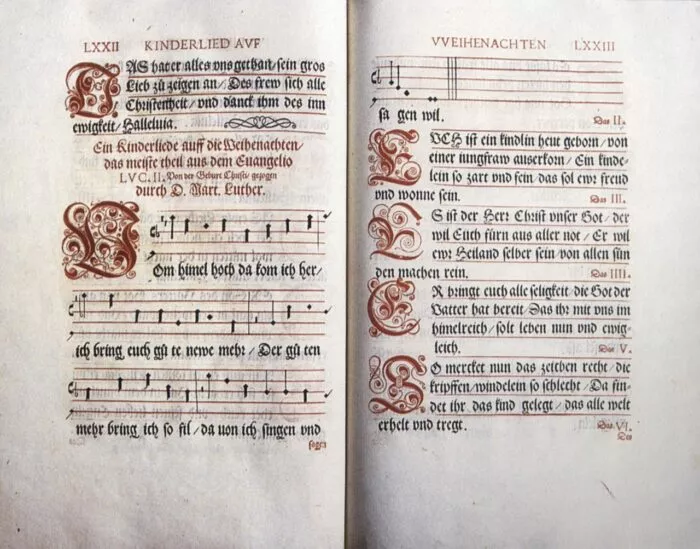 LXXII KINDERLIED AVF
DAS hat er alles vns gethan / sein gros
Lieb zu zeigen an / Des frew sich alle
Christenheit / vnd danck ihm des inn
ewigkeit / Halleluia.
Ein Kinderliede auff die Weihenachten /
das meiste theil aus dem Euangelio
LVC. II. Von der Geburt Christi / gezogen
durch D. Mart. Luther.
VOm himel hoch da kom ich her /
ich bring euch gute newe mehr / Der guten
mehr bring ich so fil / da uon ich singen vnd
sagen
VVEIHENACHTEN LXXIII
sa gen wil.
Das II.
EVCH ist ein kindlin heut geborn / von
einer jungfraw auserkorn / Ein kinde-
lein so zart vnd fein / das sol ewr freud
vnd wonne sein.
Das III.
ES ist der Herr Christ vnser Got / der
wil Euch fürn aus aller not / Er wil
ewr Heiland selber sein / von allen sün
den machen rein.
Das IIII.
ER bringt euch alle seligkeit / die Got der
Vatter hat bereit / Das ihr mit vns im
himelreich / solt leben nun vnd ewig-
leich.
Das V.
SO mercket nun das zeichen recht / die
kripffen / windelein so schlecht / Da fin-
det ihr das kind gelegt / das alle welt
erhelt vnd tregt.
Das VI.
Des